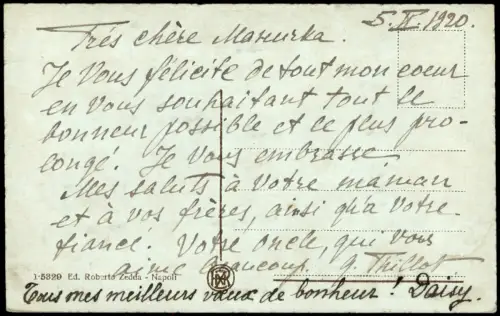 5.IV.1920.
Très chère Marurka.
Je Vous félicite de tout mon coeur
en Vous souhaitant tout le
bonneur possible et le plus pro-
longé. Je Vous embrasse.
Mes saluts à Votre maman
et à vos frères, ainsi qu'à Votre
fiancé. Votre oncle, qui vous
aime beaucoup. Thillot
1-5329 Ed. Roberto Zedda - Napoli
Tous mes meilleurs vœux de bonheur! Daisy.